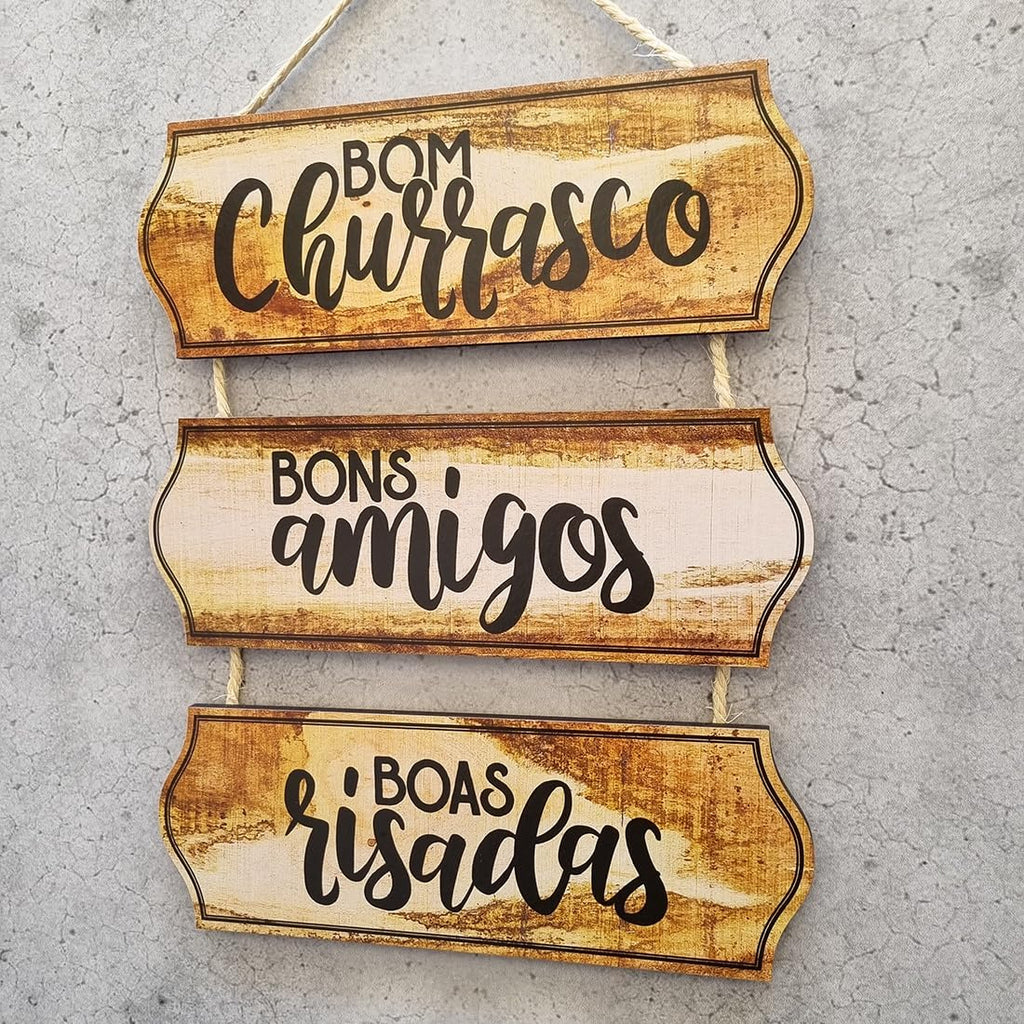 BOM
Churrasco
BONS
amigos
BOAS
risadas